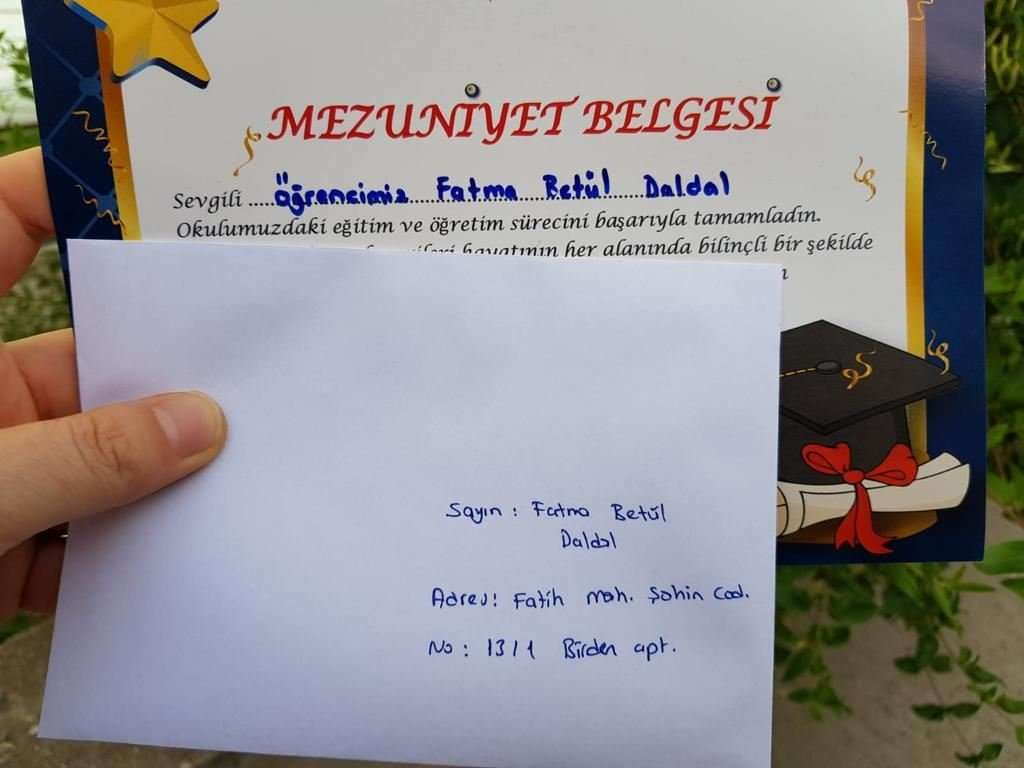 MEZUNİYET BELGESİ
Sevgili ....Öğrencimiz.....Fatma....Betül.....Daldal
Okulumuzdaki eğitim ve öğretim sürecini başarıyla tamamladın.
hayatının her alanında bilinçli bir şekilde
Sayın : Fatma Betül
Daldal
Adres: Fatih Mah. Şahin Cad.
No : 131 1 Birden apt.